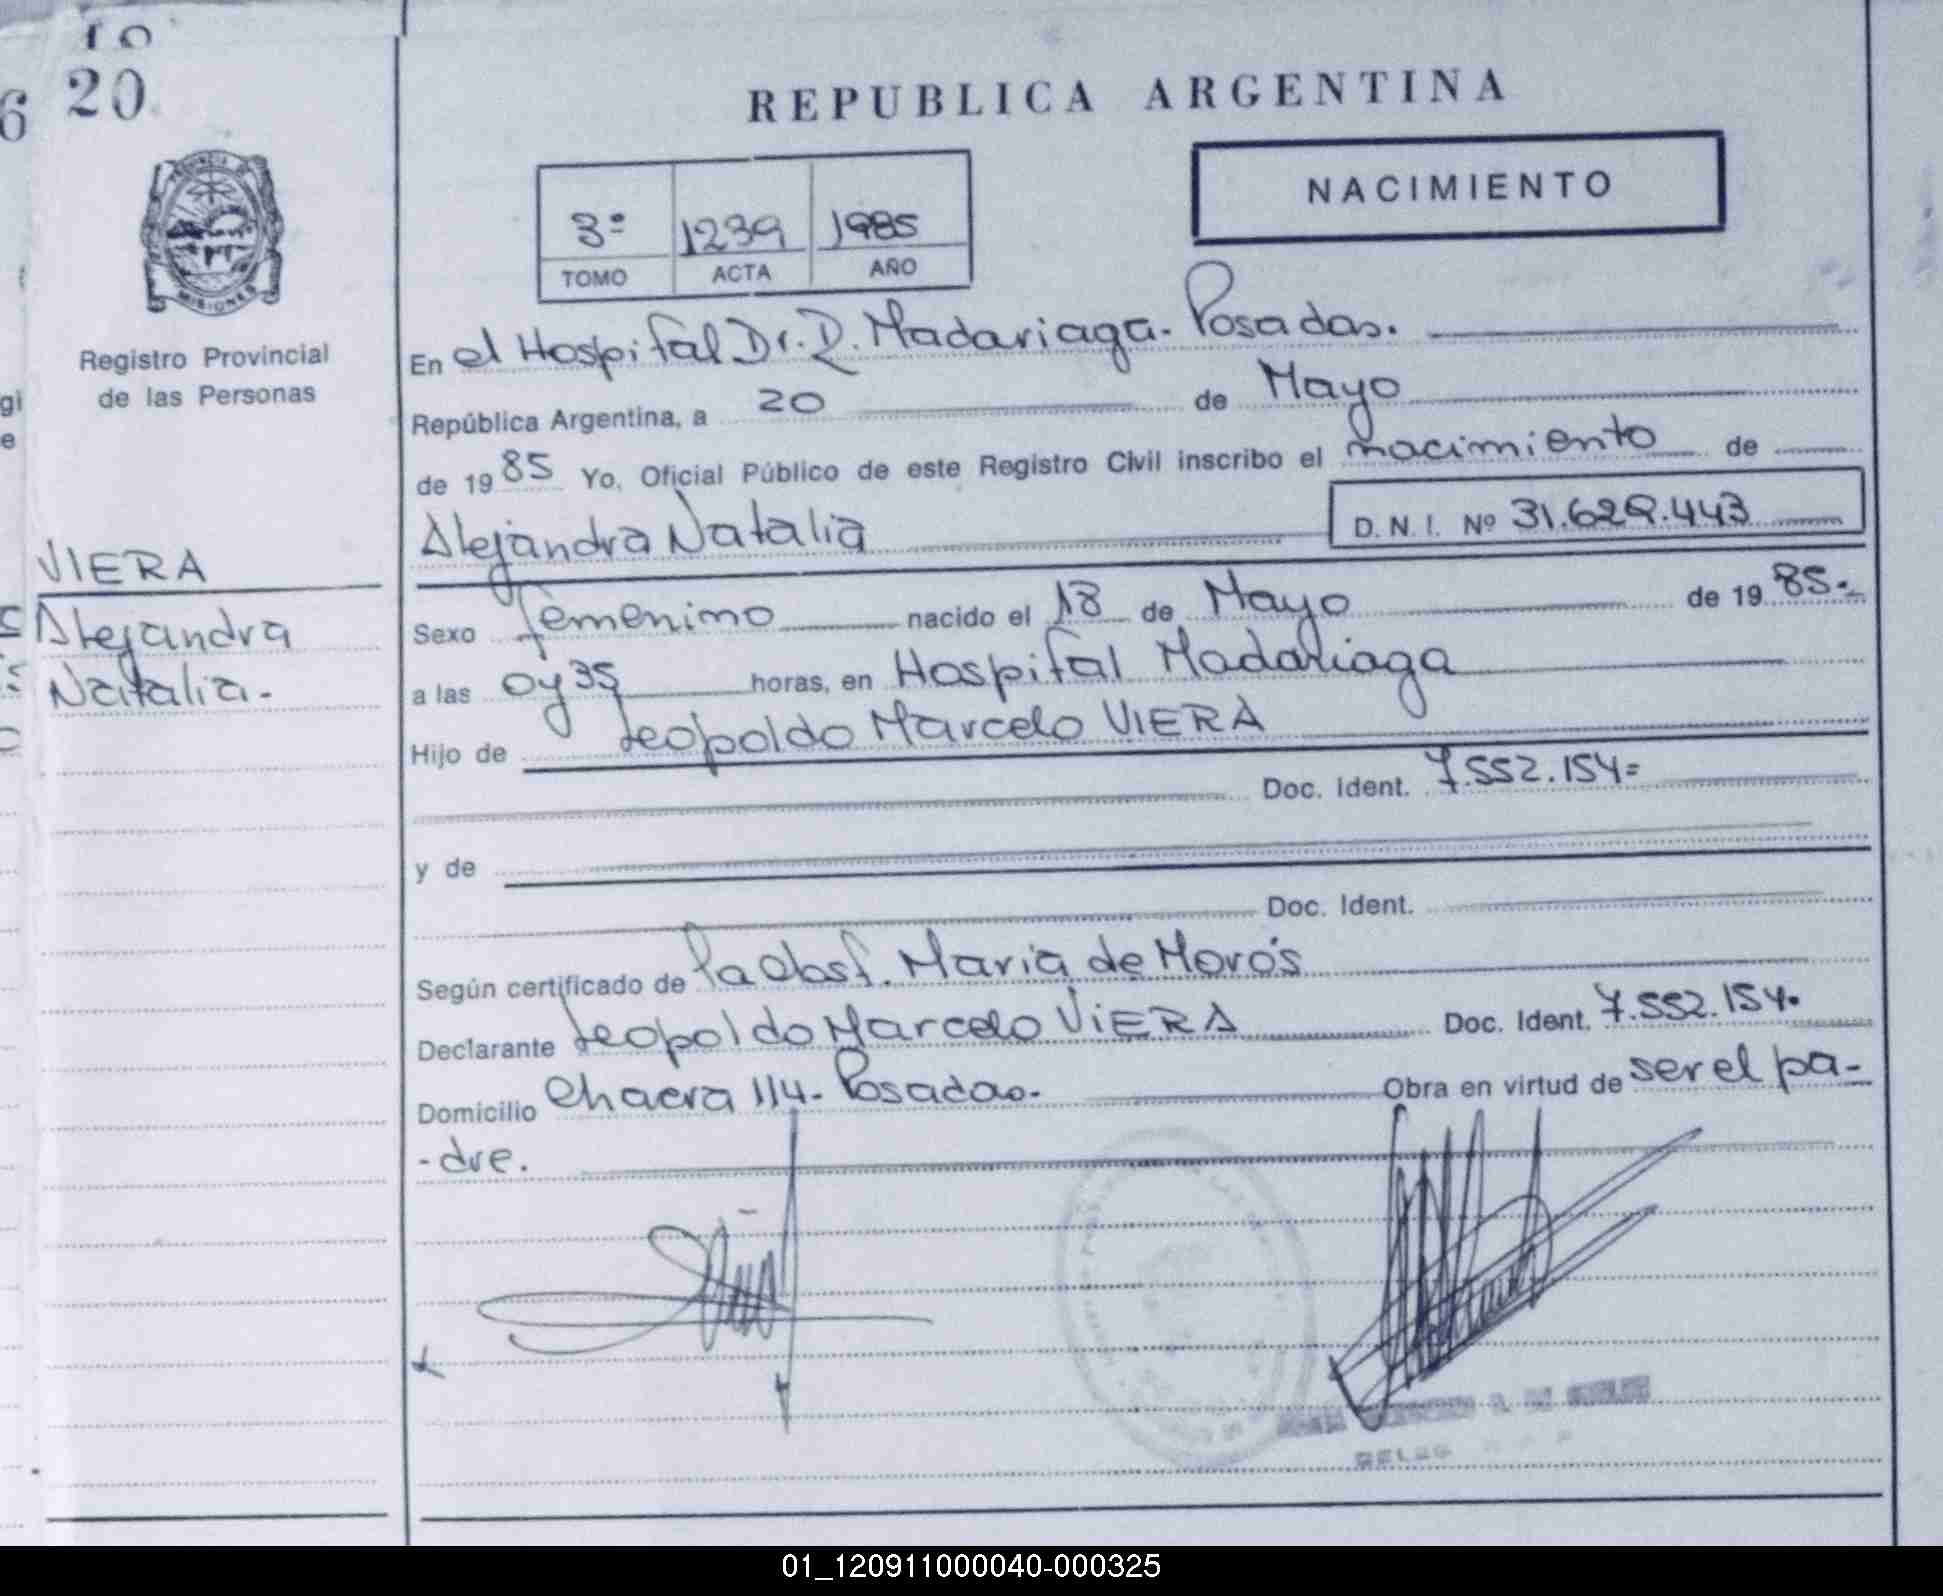 20
REPUBLICA ARGENTINA
NACIMIENTO
3º 1239 1985
TOMO ACTA AÑO
MISIONES
Registro Provincial
de las Personas
VIERA
Alejandra
Natalia.
En el Hospital Dr. R. Madariaga. Posadas.
República Argentina, a 20 de Mayo
de 1985 Yo, Oficial Público de este Registro Civil inscribo el nacimiento de
Alejandra Natalia D.N.I. Nº 31.629.443
Sexo femenino nacido el 18 de Mayo de 1985.-
a las 0y35 horas, en Hospital Madariaga
Hijo de Leopoldo Marcelo VIERA
Doc. Ident. 7.552.154=
y de
Doc. Ident.
Según certificado de la Obst. Maria de Morós
Declarante Leopoldo Marcelo VIERA Doc. Ident. 7.552.154.
Domicilio Chacra 114. Posadas. Obra en virtud de ser el pa-
-dre.
01_120911000040-000325